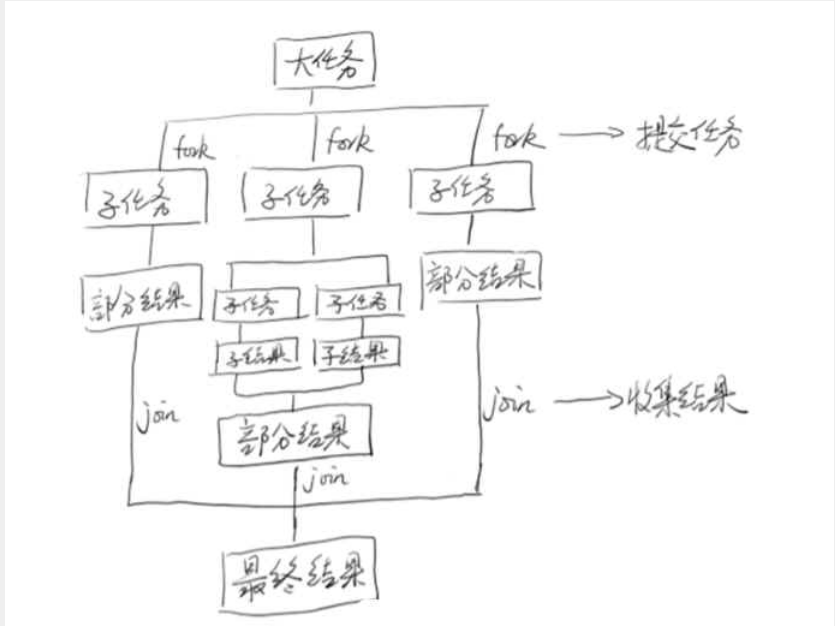 大任务
fork
fork
fork
提交任务
子任务
子任务
子任务
部分结果
部分结果
子任务
子任务
子结果
子结果
join
join
收集结果
部分结果
join
最终结果